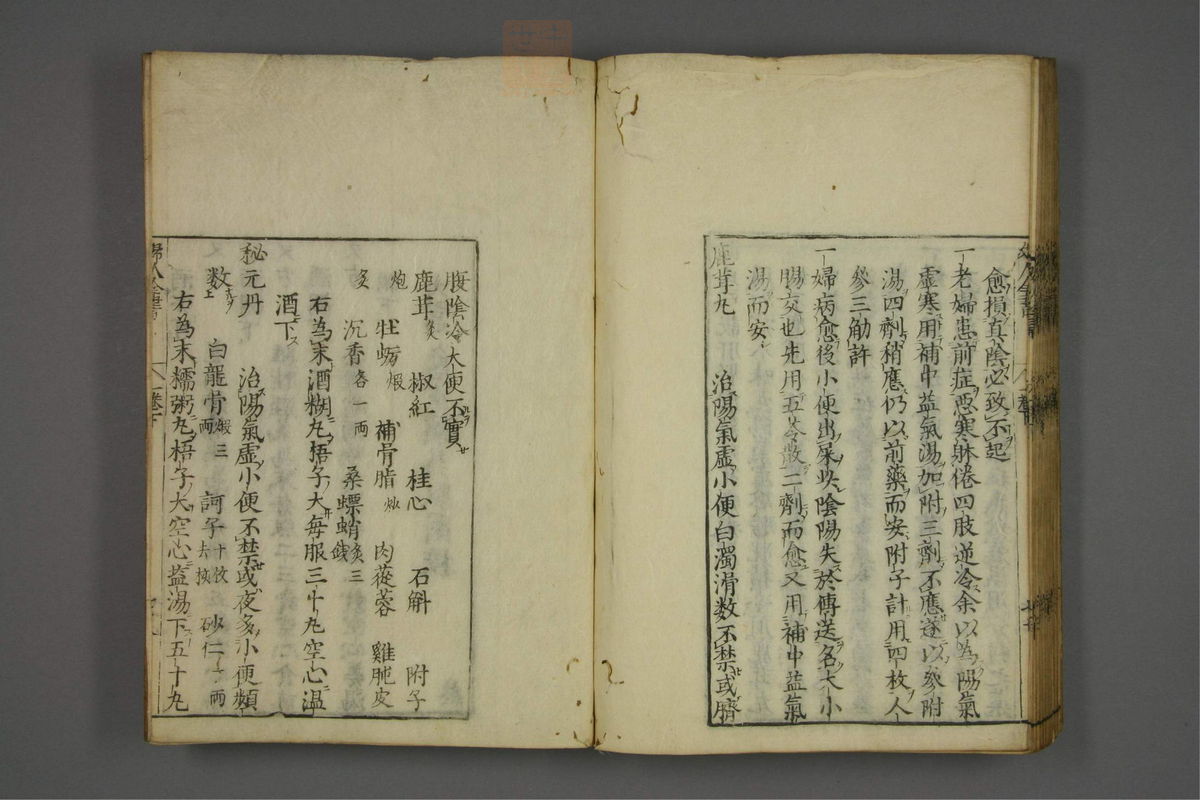 愈損真陰必致不起
一老婦患前症惡寒躰倦四肢逆冷余以為陽氣
虛寒用補中益氣湯加附三劑不應遂以參附
湯四劑稍應仍以前藥而安附子計用四枚人
參三觔許
一婦病愈後小便出屎此陰陽失於傳送名大小
腸交也先用五苓散二劑而愈又用補中益氣
湯而安
鹿茸丸 治陽氣虛小便白濁滑数不禁或臍
腹陰冷大便不實
鹿茸炙 椒紅 桂心 石斛 附子
炮 牡蛎煅 補骨脂炒 肉蓯蓉 雞肶皮
炙 沉香各一兩 桑螵蛸炙三錢
右為末酒糊丸梧子大每服三十丸空心温
酒下
秘元丹 治陽氣虛小便不禁或夜多小便頻
数 白龍骨煅三兩 訶子十枚去核 砂仁一兩
右為末糯粥丸梧子大空心盐湯下五十丸